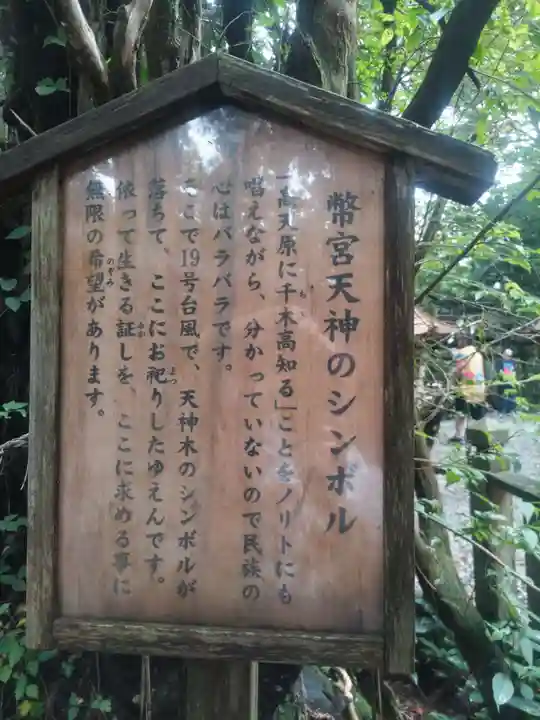 幣宮天神のシンボル
「高天原に千木高知る」ことをノリトにも
唱えながら、分かっていないので民族の
心はバラバラです。
ここで19号台風で、天神木のシンボルが
落ちて、ここにお祀りしたゆえんです。
依って生きる証しを、ここに求める事に
無限の希望があります。